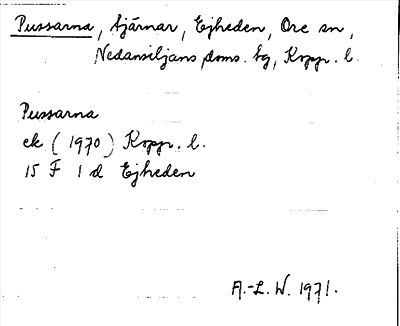 Pussarna, tjärnar, Ejheden, Ore sn,
Nedansiljans doms. tg, Kopp. l.
Pussarna
ek (1970) Kopp. l.
15 F 1 d Ejheden
A.-L. W. 1971.